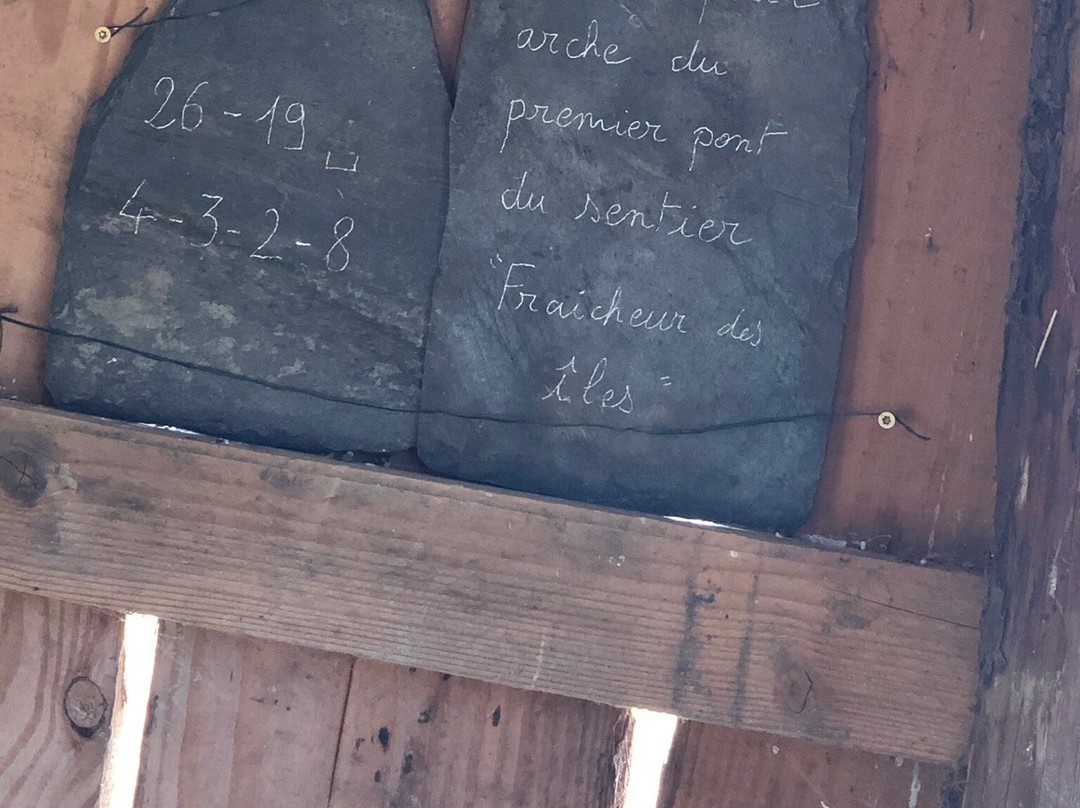 26-19
4-3-2-8
arche du
premier pont
du sentier
"Fraicheur des
îles"